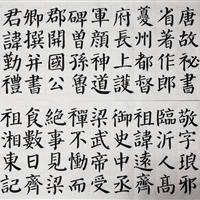 唐故秘書
省著作郎
夔州都督
府長上護
軍顏神道
碑曾孫魯
郡開國公
卿撰并書
君諱勤禮
敬字琅邪
臨沂人高
祖諱遠齊
御史中丞
梁武帝受
禪不慟而
絕事見梁
食數日齊
祖湘東記